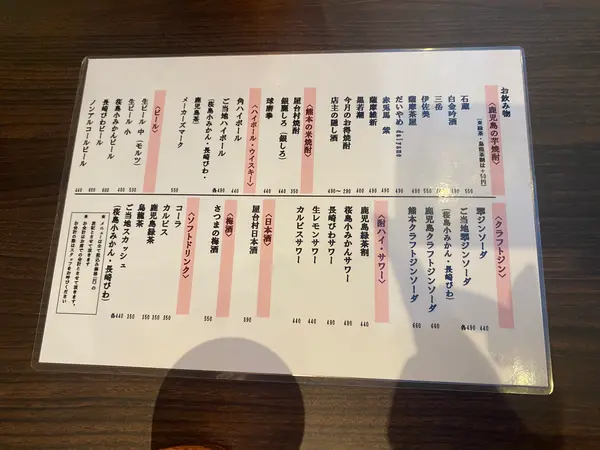 お飲み物
〈鹿児島の芋焼酎〉
(※緑茶・烏龍茶割は+50円)
石蔵
白金吟酒
三岳
伊佐美
薩摩茶屋
だいやめ daiyame
赤兎馬 紫
薩摩維新
黒若潮
今月のお得焼酎
店主の隠し酒 490〜290
〈熊本の米焼酎〉
屋台村焼酎 350
銀黒しろ(銀しろ) 440
球磨拳 440
〈ハイボール・ウイスキー〉
角ハイボール 440
ご当地ハイボール 各490
(桜島小みかん・長崎びわ・
鹿児島茶)
メーカーズマーク 550
〈ビール〉
生ビール 中(モルツ) 530
生ビール 小 400
桜島小みかんビール 600
長崎びわビール 600
ノンアルコールビール 440
〈クラフトジン〉
翠ジンソーダ 440
ご当地翠ジンソーダ 各490
(桜島小みかん・長崎びわ)
鹿児島クラフトジンソーダ 440
熊本クラフトジンソーダ 660
〈酎ハイ・サワー〉
鹿児島緑茶割 440
桜島小みかんサワー 490
長崎びわサワー 490
生レモンサワー 440
カルピスサワー 440
〈日本酒〉
屋台村日本酒 390
〈梅酒〉
さつまの梅酒 550
〈ソフトドリンク〉
コーラ 350
カルピス 350
鹿児島緑茶 350
烏龍茶 350
ご当地スカッシュ 各440
(桜島小みかん・長崎びわ)